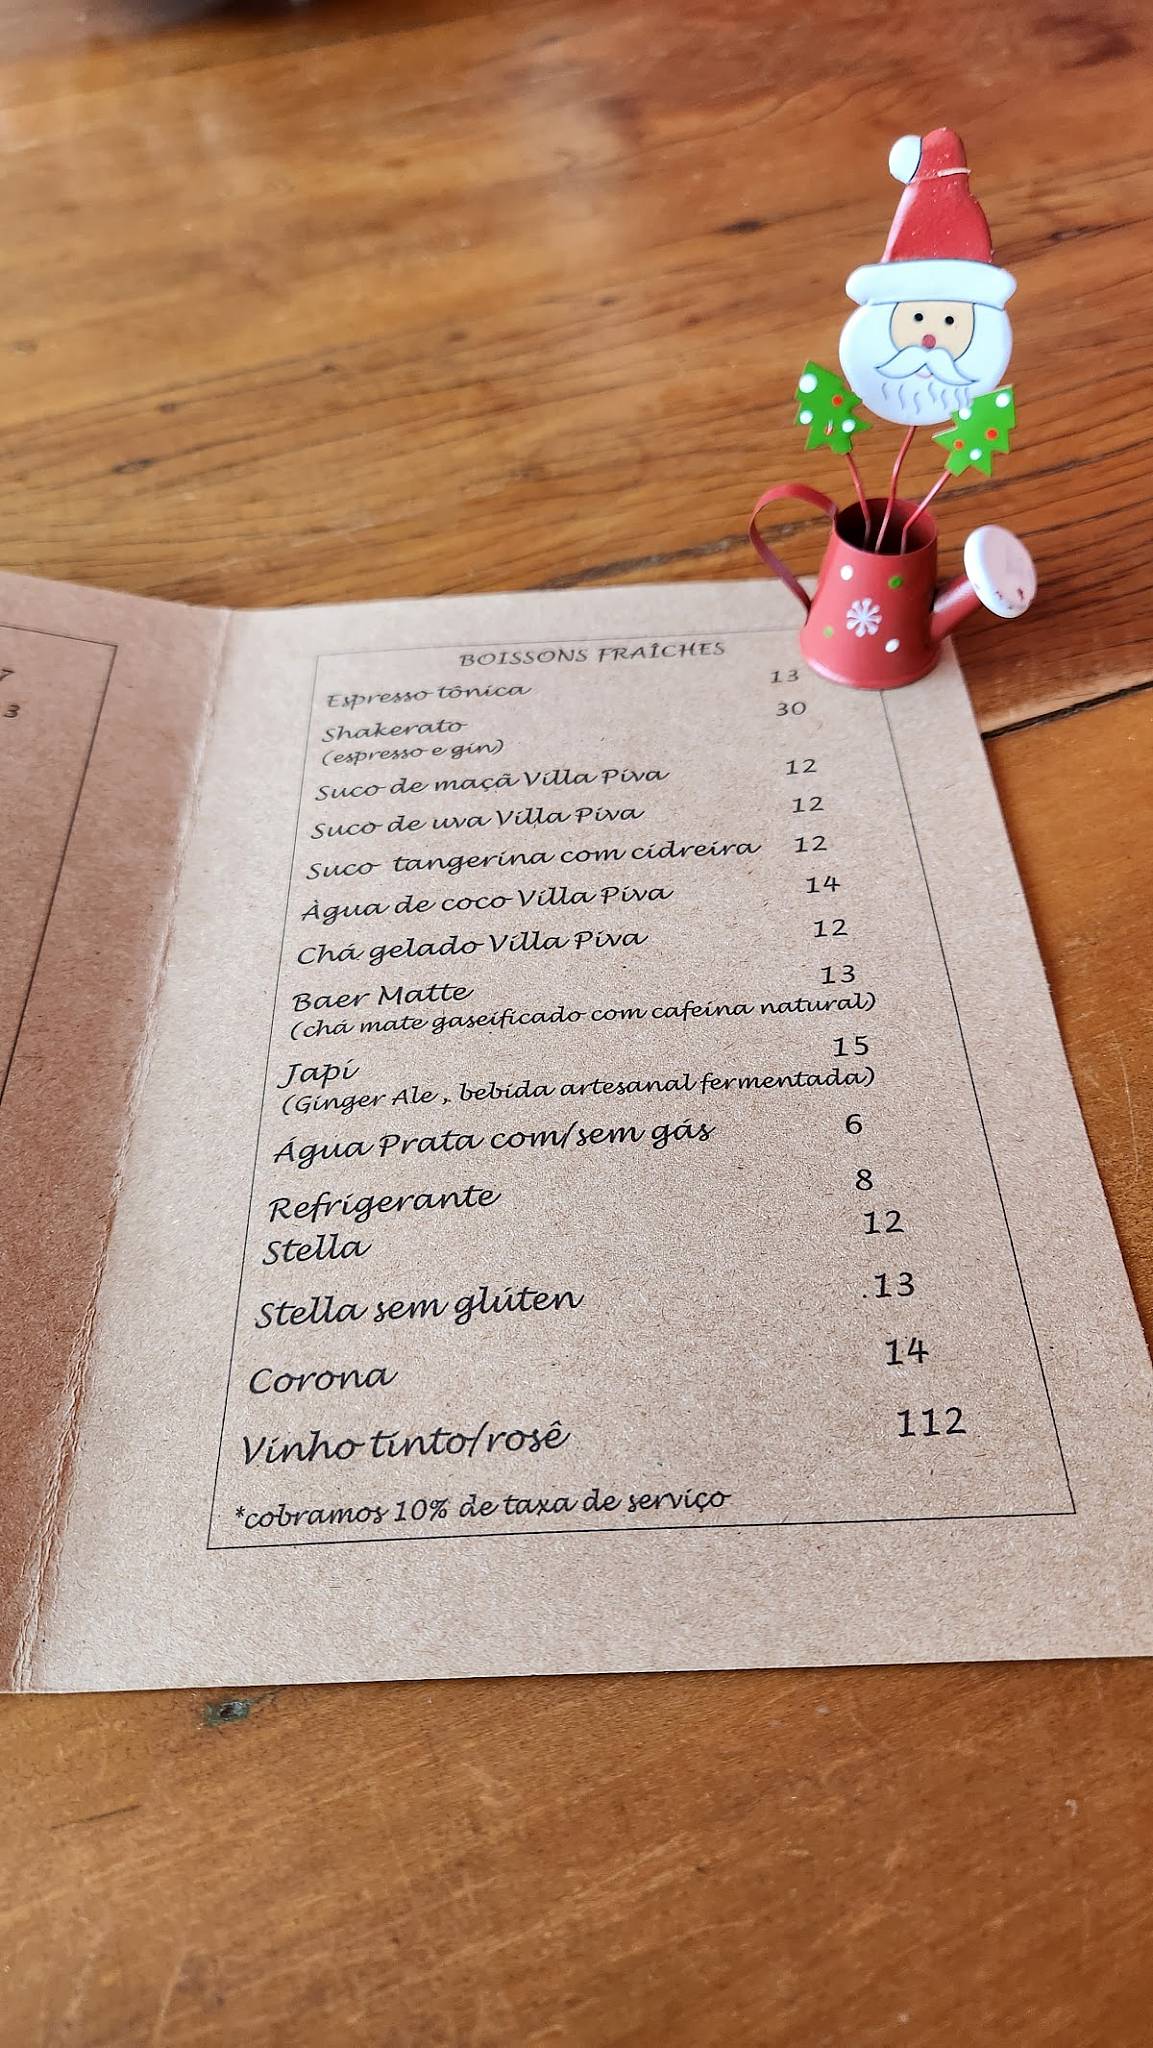 7
3
BOISSONS FRAÎCHES
Espresso tônica 13
Shakerato 30
(espresso e gin)
Suco de maçã Villa Piva 12
Suco de uva Villa Piva 12
Suco tangerina com cidreira 12
Àgua de coco Villa Piva 14
Chá gelado Villa Piva 12
Baer Matte 13
(chá mate gaseificado com cafeína natural)
Japi 15
(Ginger Ale , bebida artesanal fermentada)
Água Prata com/sem gás 6
Refrigerante 8
Stella 12
Stella sem glúten .13
Corona 14
Vinho tinto/rosê 112
*cobramos 10% de taxa de serviço